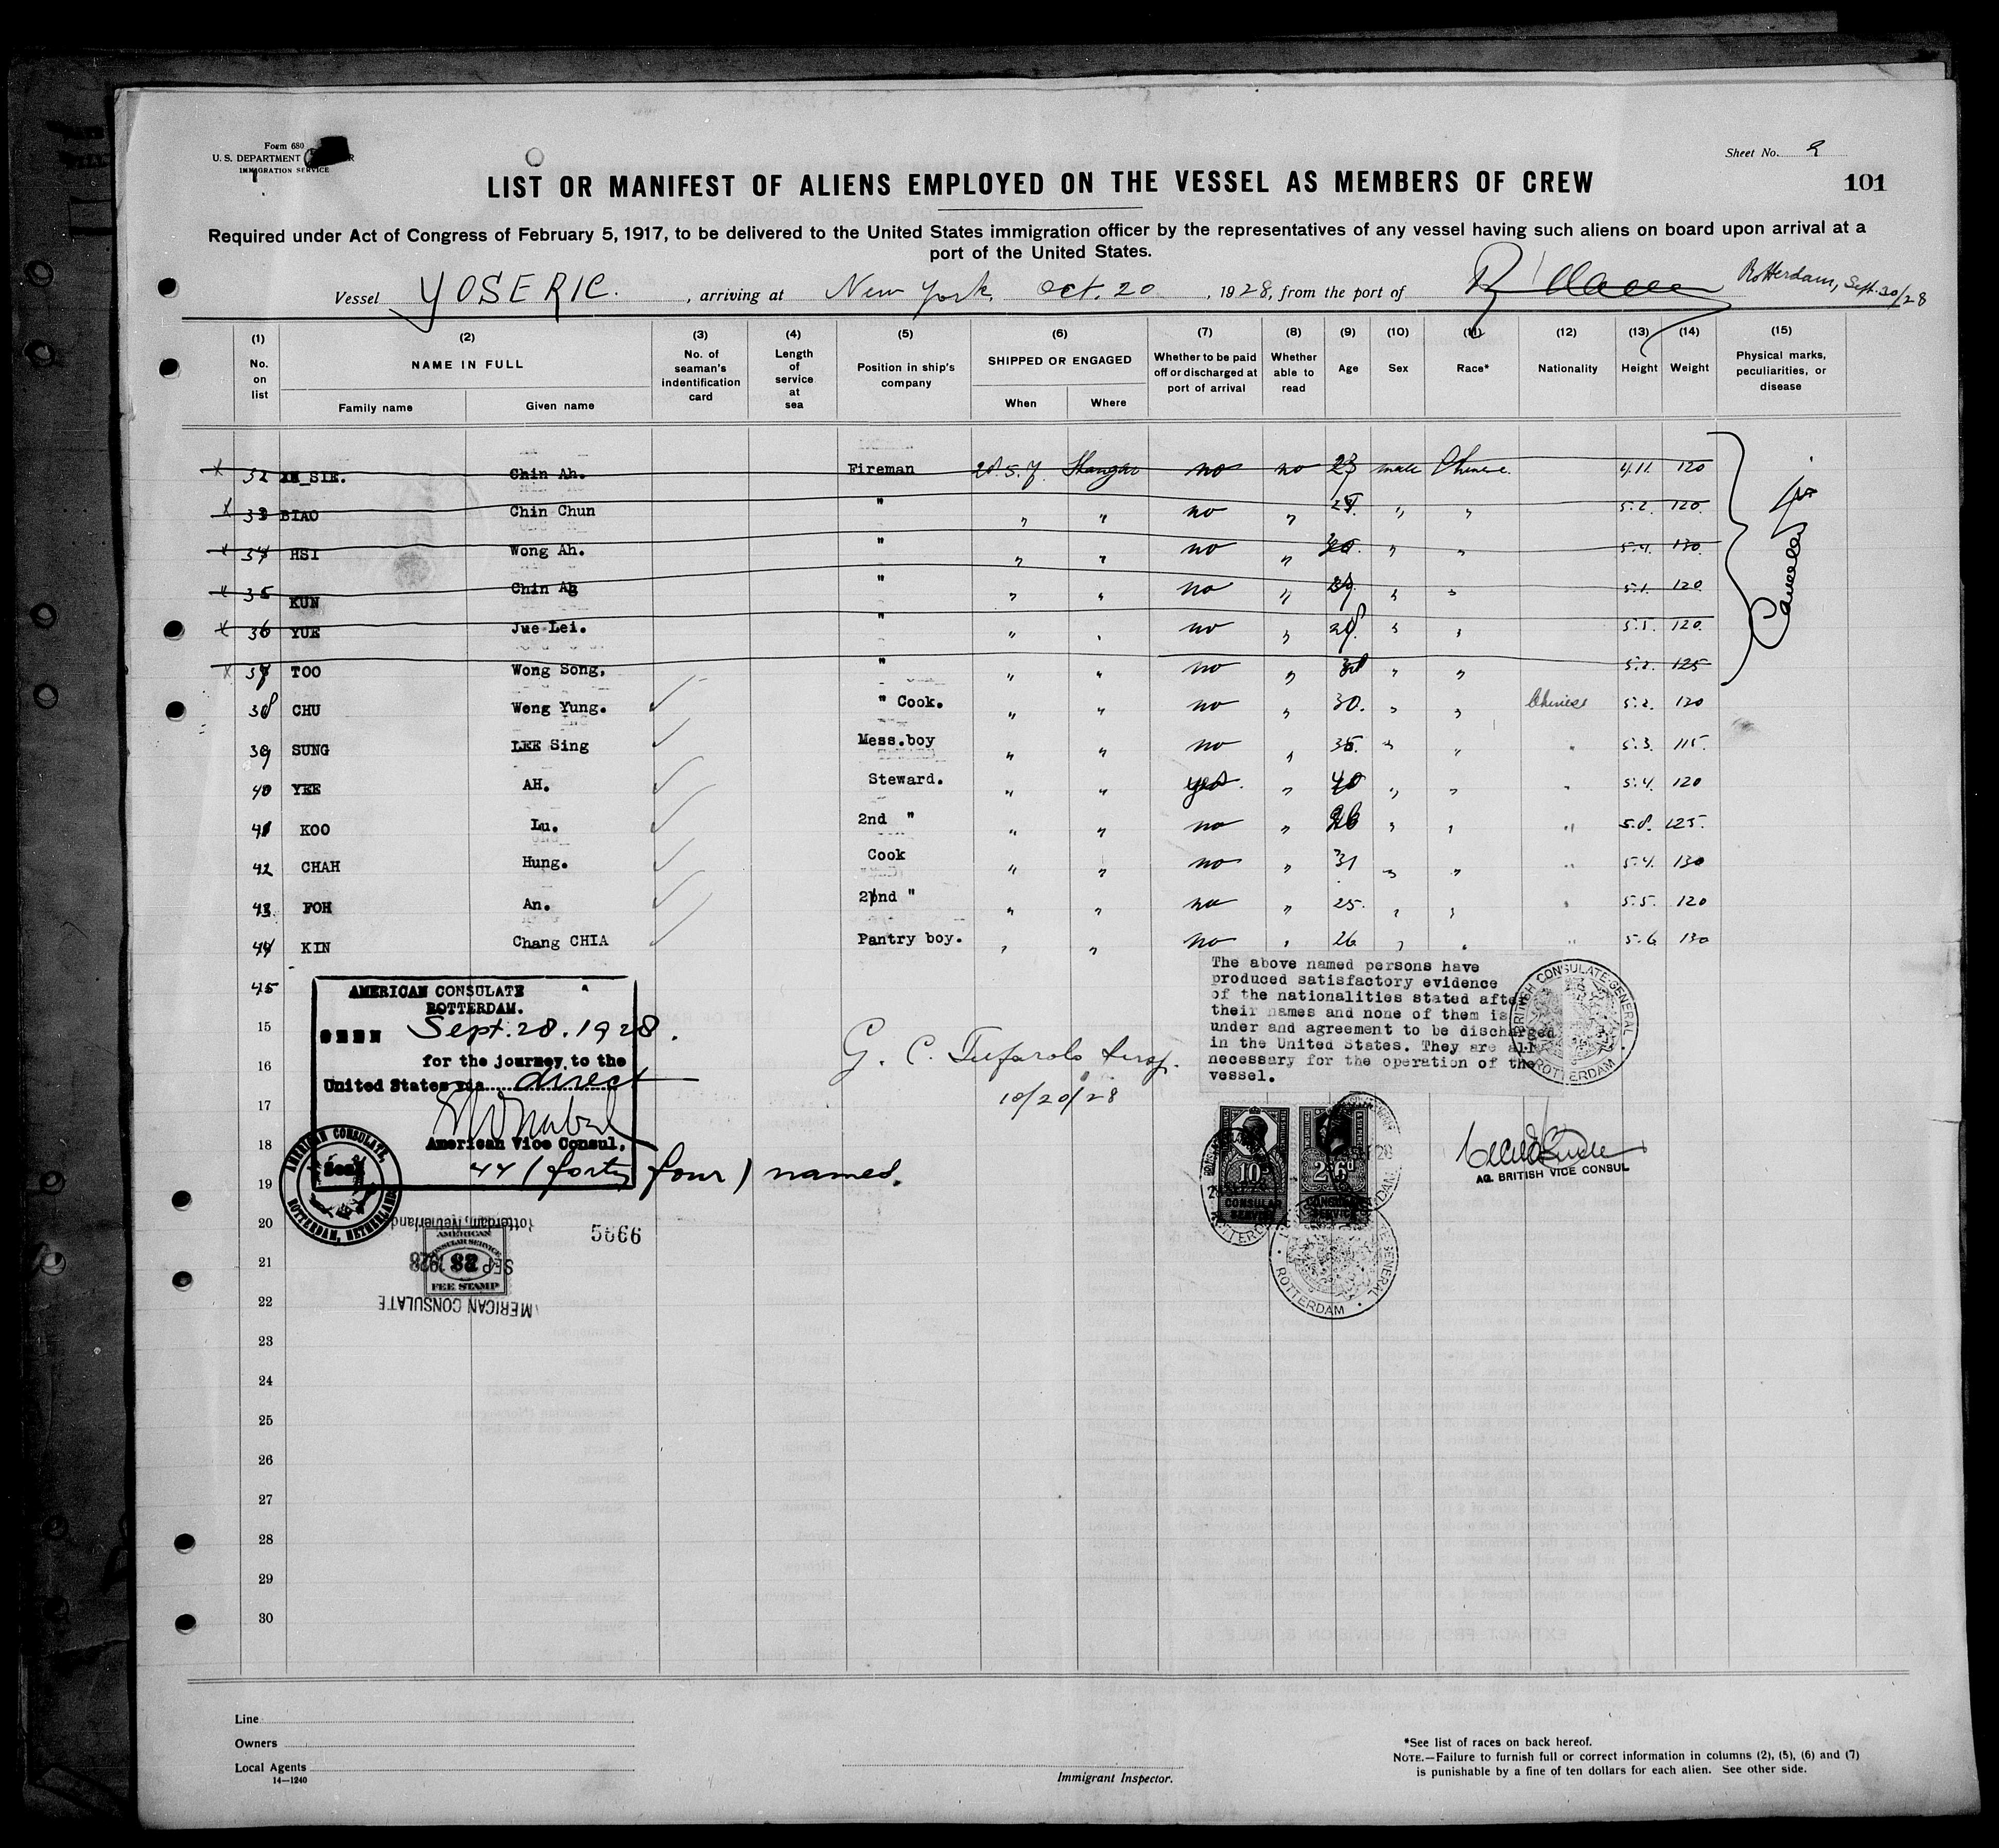 Form 680
U. S. DEPARTMENT
IMMIGRATION SERVICE
Sheet No. 2
LIST OR MANIFEST OF ALIENS EMPLOYED ON THE VESSEL AS MEMBERS OF CREW
101
Required under Act of Congress of February 5, 1917, to be delivered to the United States immigration officer by the representatives of any vessel having such aliens on board upon arrival at a
port of the United States.
Vessel YOSERIC. , arriving at New York, Oct. 20 , 1928, from the port of Rotterdam, Sept. 30/28
(1) (2) (3) (4) (5) (6) (7) (8) (9) (10) (11) (12) (13) (14) (15)
No. on list NAME IN FULL No. of seaman's indentification card Length of service at sea Position in ship's company SHIPPED OR ENGAGED Whether to be paid off or discharged at port of arrival Whether able to read Age Sex Race* Nationality Height Weight Physical marks, peculiarities, or disease
Family name Given name When Where
32 SIE. Chin Ah. Fireman 28.5.7. Shanghai no no 27 male Chinese 4.11 120
33 BIAO Chin Chun " " " no " " " 5.2. 120.
34 HSI Wong Ah. " " " no " " " 5.4. 130.
35 KUN Chin Ah " " " no " " " 5.1. 120
36 YUE Jue Lei. " " " no " 28 " " 5.5. 120.
37 TOO Wong Song, " " " no " " " 5.2. 125
Cancelled
38 CHU Wong Yung. " Cook. " " no " 30. " " Chinese 5.2. 120
39 SUNG LEE Sing Mess.boy " " no " 35. " " " 5.3. 115.
40 YEE AH. Steward. " " yes. " 40 " " " 5.4. 120
41 KOO Lu. 2nd " " " no " 26 " " " 5.8. 125.
42 CHAH Hung. Cook " " no " 31 " " " 5.4. 130
43. FOH An. 2nd " " " no " 25. " " " 5.5. 120
44 KIN Chang CHIA Pantry boy. " " no " 26 " " " 5.6 130
45
AMERICAN CONSULATE
ROTTERDAM.
SEEN Sept. 28. 1928.
for the journey to the
United States via direct
American Vice Consul.
44 (forty four) named.
AMERICAN CONSULATE,
ROTTERDAM, NETHERLANDS
Seal
The above named persons have
produced satisfactory evidence
of the nationalities stated after
their names and none of them is
under and agreement to be discharged
in the United States. They are all
necessary for the operation of the
vessel.
BRITISH CONSULATE-GENERAL
ROTTERDAM
10/20/28
10s
CONSULAR
SERVICE
2s6d
CONSULAR
SERVICE
AG. BRITISH VICE CONSUL
ROTTERDAM
Rotterdam, Netherlands
5666
AMERICAN
CONSULAR SERVICE
$2
FEE STAMP
SEP 28 1928
AMERICAN CONSULATE
15
16
17
18
19
20
21
22
23
24
25
26
27
28
29
30
Line
Owners
Local Agents
14—1240
Immigrant Inspector.
*See list of races on back hereof.
NOTE.—Failure to furnish full or correct information in columns (2), (5), (6) and (7)
is punishable by a fine of ten dollars for each alien. See other side.